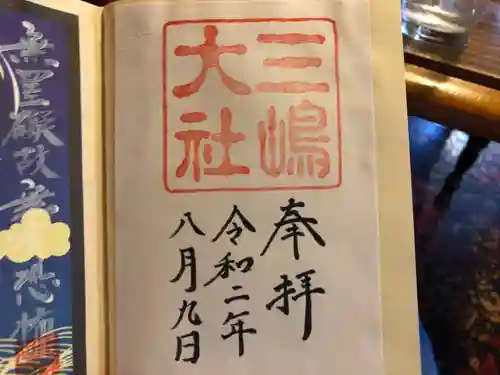 三嶋
大社
奉拝
令和二年
八月九日
無罣礙故無
恐怖